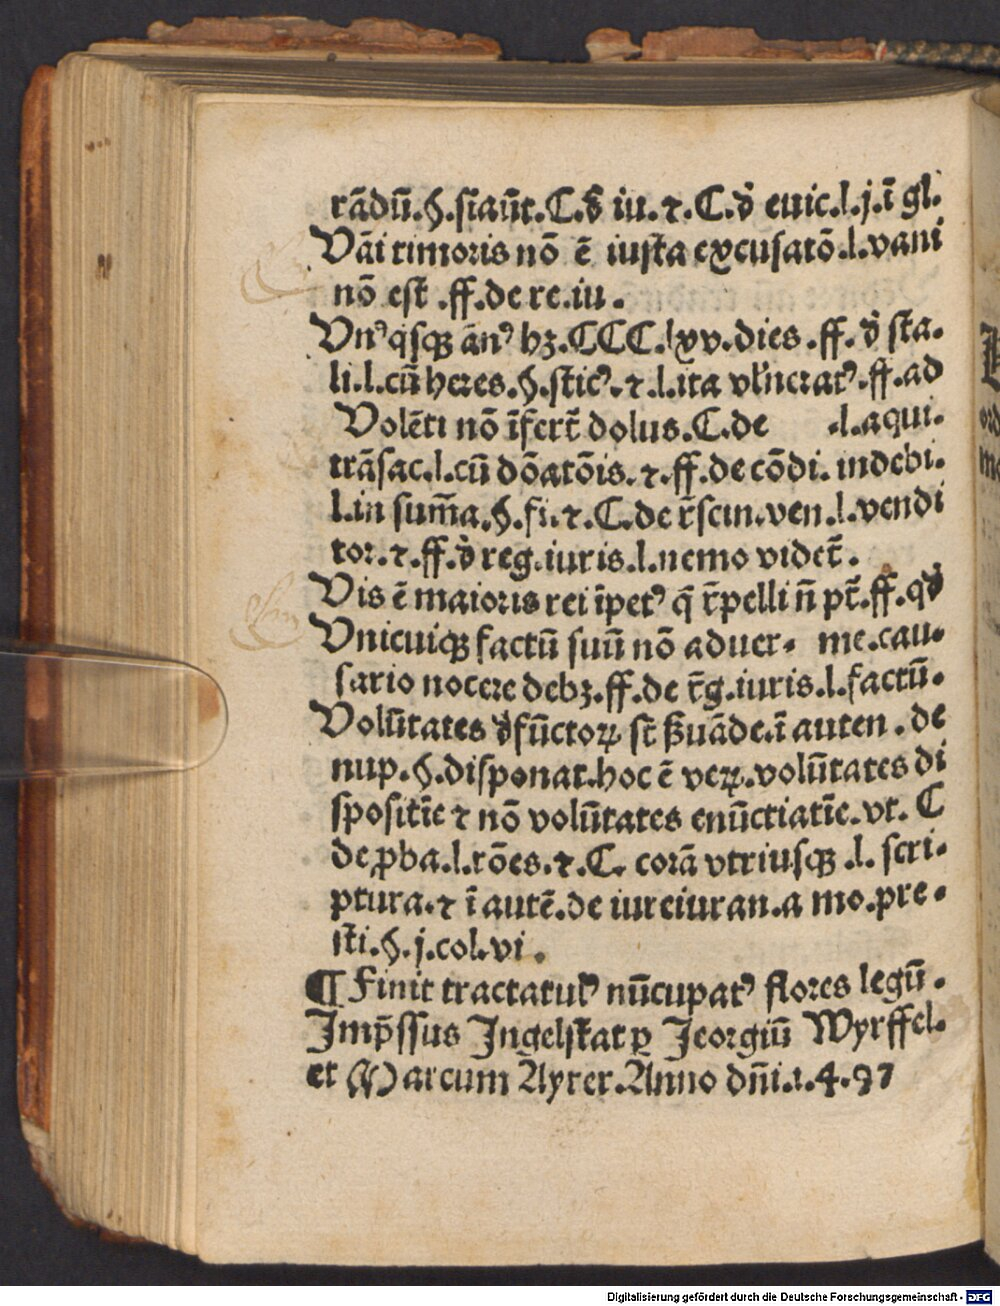 rādū.§.ſiaūt.C.đ iu.⁊.C.đ euic.l.j.ī gl.
Vāi timoris nō ē iuſta excuſatō.l.vani
nō eſt .ff.de re.iu.
Vnꝰ qͥſqꝫ ānꝰ hꝫ.CCC.lxv.dies .ff.đ ſta.
li.l.cū heres.§.ſticꝰ.⁊.l.ita vl̄neratꝰ.ff.ad
Volēti nō īfert̄ dolus.C.de .l.aqui.
trāſac.l.cū dōatōis.⁊.ff.de cōdi. indebi.
l.in ſum̄a.§.fi.⁊.C.de r̄ſcin.ven.l.vendi
tor.⁊.ff.đ reg.iuris.l.nemo videt̄.
Vis ē maioris rei īpetꝰ q̄ r̄pelli n̄ pt̄.ff.qđ
Vnicuiqꝫ factū ſuū nō aduer. me.cau.
ſario nocere debꝫ.ff.de r̄g.iuris.l.factū.
Volūtates đfūctoꝝ ſt̄ ẜuāde.ī auten.de
nup.§.diſponat.hoc ē veꝝ.volūtates di
ſpoſitīe ⁊ nō volūtates enūctiatīe.vt. C
de ꝓba.l.rōes.⁊.C. corā vtriuſqꝫ .l. ſcri.
ptura.⁊ ī autē.de iureiuran.a mo.pre.
ſti.§.j.col.vi.
¶ Finit tractatulꝰ nūcupatꝰ flores legū.
Jmp̄ſſus Jngelſtat ꝑ Jeorgiū Wyrffel.
et Marcum Ayrer.Anno dn̄i.1.4.97
Digitalisierung gefördert durch die Deutsche Forschungsgemeinschaft - DFG